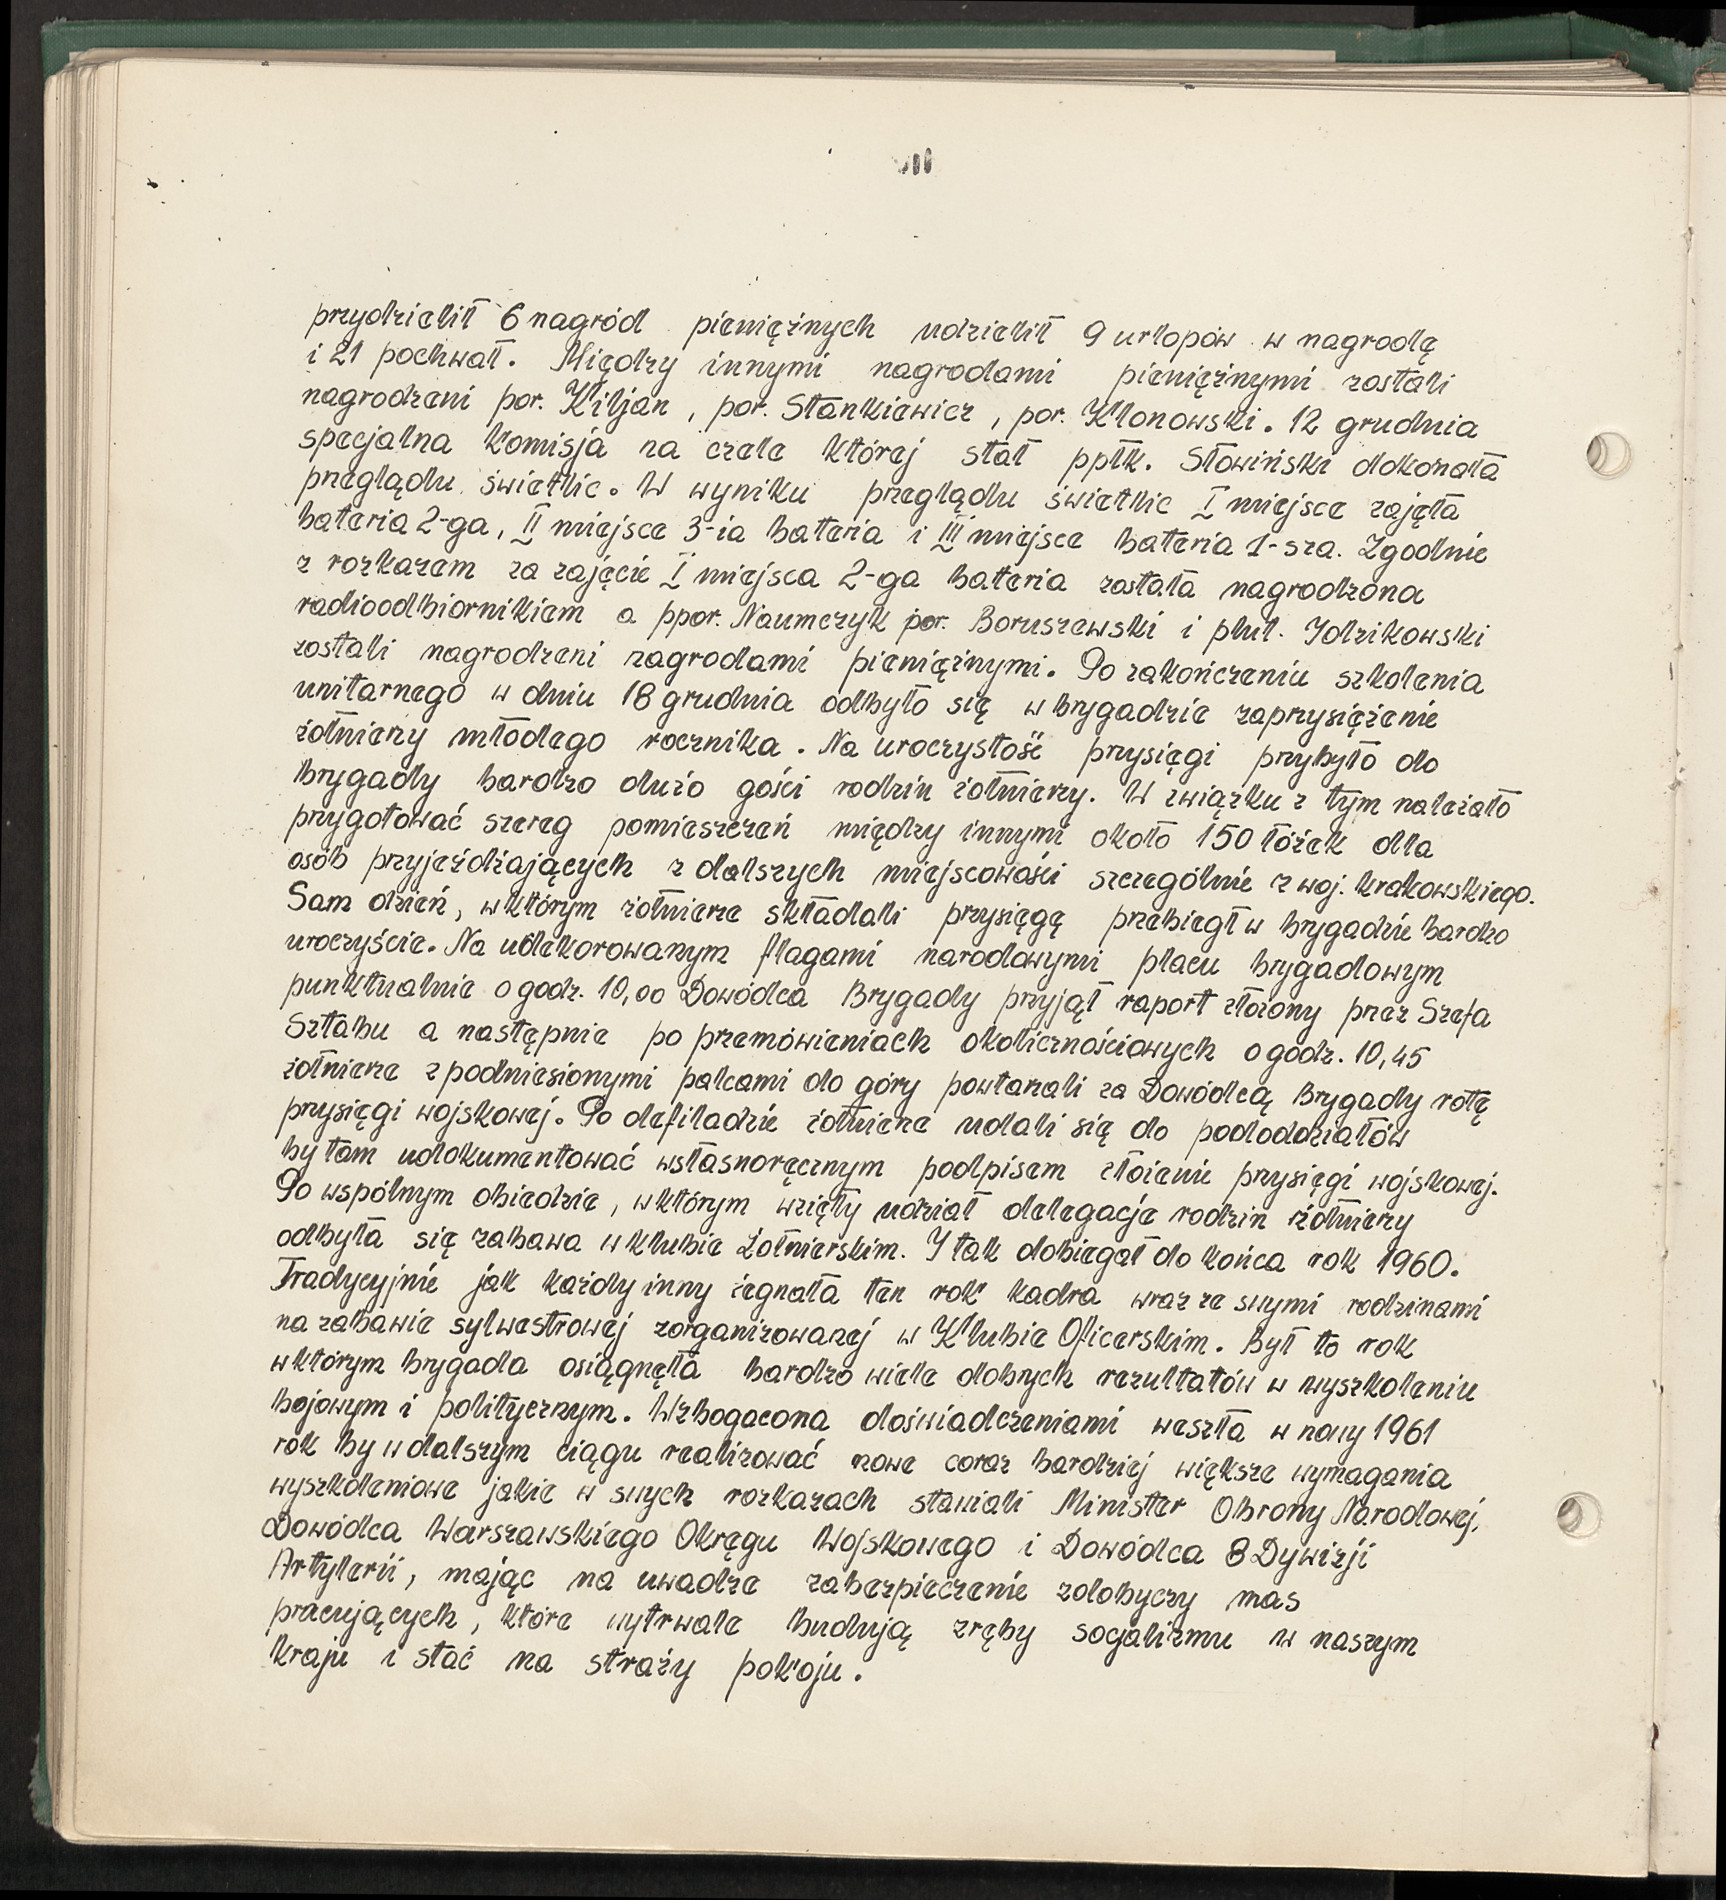 przydzielił 6 nagród pieniężnych udzielił 9 urlopów w nagrodę
i 21 pochwał. Między innymi nagrodami pieniężnymi zostali
nagrodzeni por. Kiljan, por. Stankiewicz, por. Klonowski. 12 grudnia
specjalna komisja na czele której stał ppłk. Słowiński dokonała
przeglądu świetlic. W wyniku przeglądu świetlic I miejsce zajęła
bateria 2-ga, II miejsce 3-ia bateria i III miejsce bateria 1-sza. Zgodnie
z rozkazem za zajęcie I miejsca 2-ga bateria została nagrodzona
radioodbiornikiem a ppor. Naumczyk por. Boruszewski i plut. Idzikowski
zostali nagrodzeni nagrodami pieniężnymi. Po zakończeniu szkolenia
unitarnego w dniu 18 grudnia odbyło się w brygadzie zaprzysiężenie
żołnierzy młodego rocznika. Na uroczystość przysięgi przybyło do
brygady bardzo dużo gości rodzin żołnierzy. W związku z tym należało
przygotować szereg pomieszczeń między innymi około 150 łóżek dla
osób przyjeżdżających z dalszych miejscowości szczególnie z woj. krakowskiego.
Sam dzień, w którym żołnierze składali przysięgę przebiegł w brygadzie bardzo
uroczyście. Na udekorowanym flagami narodowymi placu brygadowym
punktualnie o godz. 10,00 Dowódca Brygady przyjął raport złożony przez Szefa
Sztabu a następnie po przemówieniach okolicznościowych o godz. 10,45
żołnierze z podniesionymi palcami do góry powtarzali za Dowódcą Brygady rotę
przysięgi wojskowej. Po defiladzie żołnierze udali się do pododdziałów
by tam udokumentować własnoręcznym podpisem złożenie przysięgi wojskowej.
Po wspólnym obiedzie, w którym wzięły udział delegacje rodzin żołnierzy
odbyła się zabawa w klubie Żołnierskim. I tak dobiegał do końca rok 1960.
Tradycyjnie jak każdy inny żegnała ten rok kadra wraz ze swymi rodzinami
na zabawie sylwestrowej zorganizowanej w Klubie Oficerskim. Był to rok
w którym brygada osiągnęła bardzo wiele dobrych rezultatów w wyszkoleniu
bojowym i politycznym. Wzbogacona doświadczeniami weszła w nowy 1961
rok by w dalszym ciągu realizować nowe coraz bardziej większe wymagania
wyszkoleniowe jakie w swych rozkazach stawiali Minister Obrony Narodowej,
Dowódca Warszawskiego Okręgu Wojskowego i Dowódca 8 Dywizji
Artylerii, mając na uwadze zabezpieczenie zdobyczy mas
pracujących, które wytrwale budują zręby socjalizmu w naszym
kraju i stać na straży pokoju.